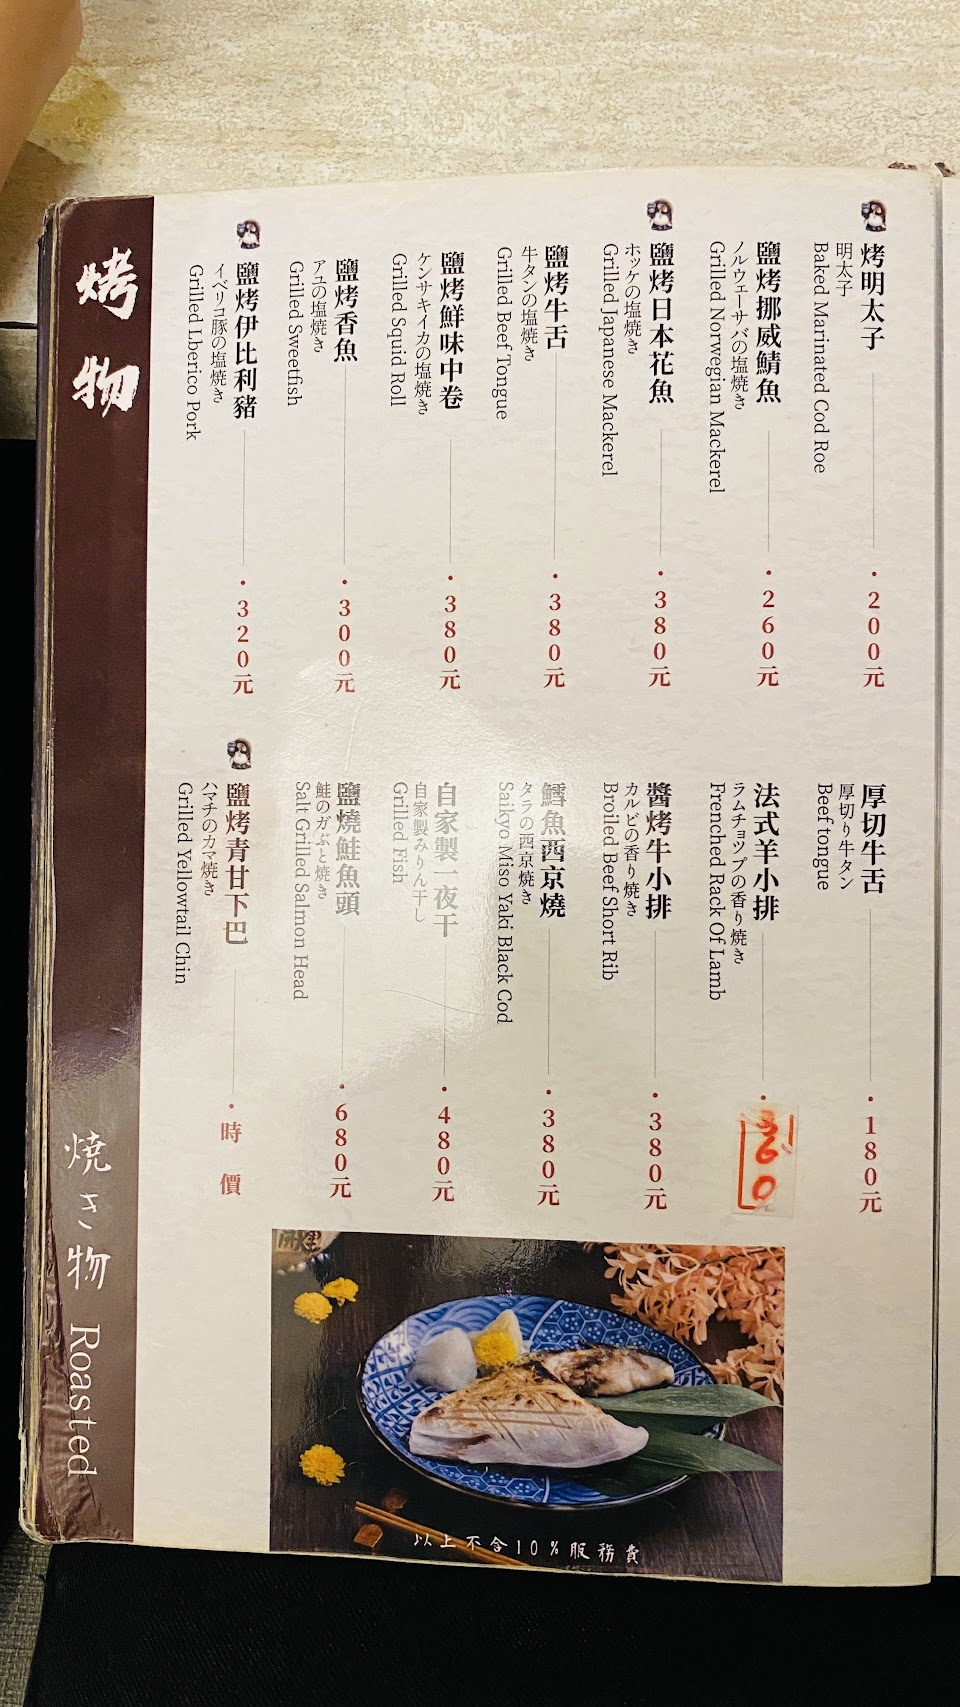 烤物
烤明太子
明太子
Baked Marinated Cod Roe
•200元
鹽烤挪威鯖魚
ノルウェーサバの塩焼き
Grilled Norwegian Mackerel
•260元
鹽烤日本花魚
ホッケの塩焼き
Grilled Japanese Mackerel
•380元
鹽烤牛舌
牛タンの塩焼き
Grilled Beef Tongue
•380元
鹽烤鮮味中卷
ケンサキイカの塩焼き
Grilled Squid Roll
•380元
鹽烤香魚
アユの塩焼き
Grilled Sweetfish
•300元
鹽烤伊比利豬
イベリコ豚の塩焼き
Grilled Lberico Pork
•320元
厚切牛舌
厚切り牛タン
Beef tongue
•180元
法式羊小排
ラムチョップの香り焼き
Frenched Rack Of Lamb
醬烤牛小排
カルビの香り焼き
Broiled Beef Short Rib
•380元
鱈魚西京燒
タラの西京焼き
Saikyo Miso Yaki Black Cod
•380元
自家製一夜干
自家製みりん干し
Grilled Fish
•480元
鹽燒鮭魚頭
鮭のガぶと焼き
Salt Grilled Salmon Head
•680元
鹽烤青甘下巴
ハマチのカマ焼き
Grilled Yellowtail Chin
•時價
焼き物 Roasted
以上不含10%服務費